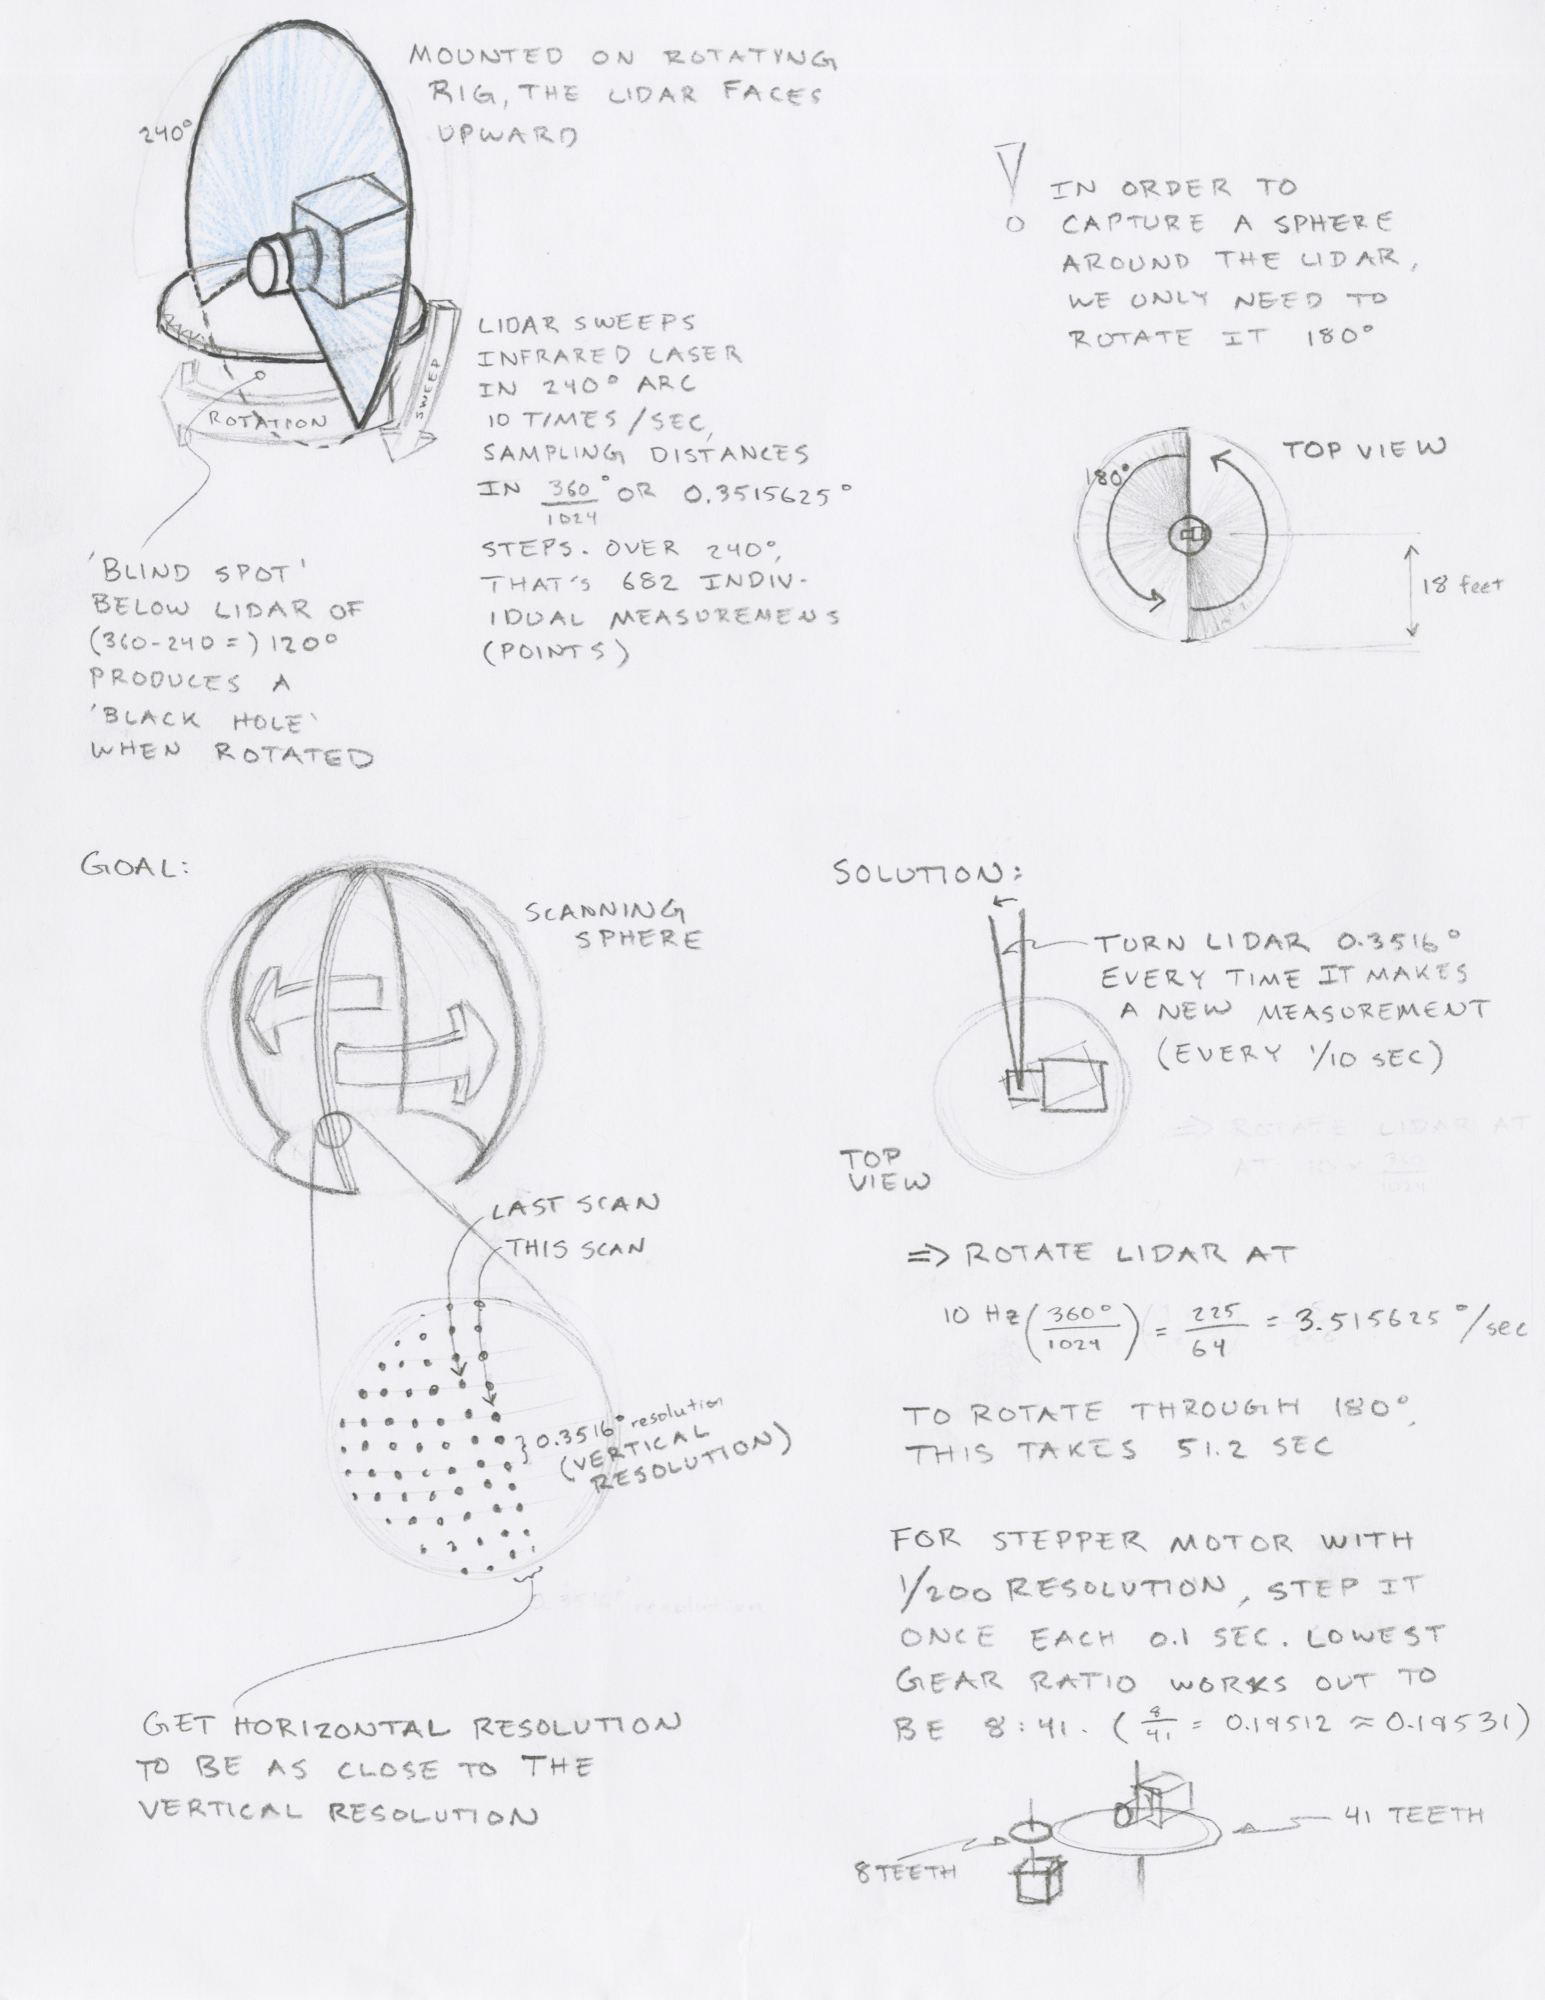 MOUNTED ON ROTATYNG
RIG, THE LIDAR FACES
UPWARD
240°
LIDAR SWEEPS
INFRARED LASER
IN 240° ARC
10 TIMES/SEC,
SAMPLING DISTANCES
IN 360/1024° OR 0.3515625°
STEPS. OVER 240°,
THAT'S 682 INDIV-
IDUAL MEASUREMENS
(POINTS)
SWEEP
ROTATION
'BLIND SPOT'
BELOW LIDAR OF
(360-240=) 120°
PRODUCES A
'BLACK HOLE'
WHEN ROTATED
IN ORDER TO
CAPTURE A SPHERE
AROUND THE LIDAR,
WE ONLY NEED TO
ROTATE IT 180°
TOP VIEW
180°
18 feet
GOAL:
SCANNING
SPHERE
LAST SCAN
THIS SCAN
0.3516° resolution
(VERTICAL
RESOLUTION)
GET HORIZONTAL RESOLUTION
TO BE AS CLOSE TO THE
VERTICAL RESOLUTION
SOLUTION:
TURN LIDAR 0.3516°
EVERY TIME IT MAKES
A NEW MEASUREMENT
(EVERY 1/10 SEC)
TOP
VIEW
=> ROTATE LIDAR AT
=> ROTATE LIDAR AT
10 Hz (360°/1024) = 225/64 = 3.515625°/sec
TO ROTATE THROUGH 180°,
THIS TAKES 51.2 SEC
FOR STEPPER MOTOR WITH
1/200 RESOLUTION, STEP IT
ONCE EACH 0.1 SEC. LOWEST
GEAR RATIO WORKS OUT TO
BE 8:41. (8/41 = 0.19512 ≈ 0.19531)
41 TEETH
8 TEETH